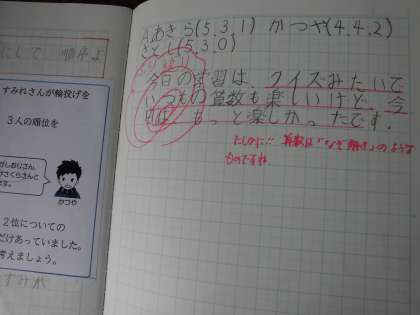 にして 順序よ
すみれさんが輪投げを
3人の順位を
がしおりさん、
さくらさんと
です。
かつや
2位についての
だけあっていました。
考えましょう。
すみれ
A.あきら(5,3,1) かつや(4,4,2)
さとし(5,3,0)
今日の学習は、クイズみたいで
いつもの算数も楽しいけど、今
日は、もっと楽しかったです。
たしかに!! 算数は「なぞ解き」のような
ものですね